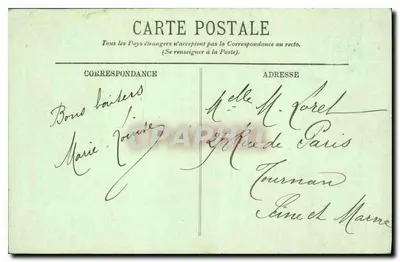 CARTE POSTALE
Tous les Pays étrangers n'acceptent pas la Correspondance au recto.
(Se renseigner à la Poste).
CORRESPONDANCE
ADRESSE
Bons baisers
Marie Louise
Melle M. Loret
Rue de Paris
Tournan
Seine et Marne
CARPAPHIL